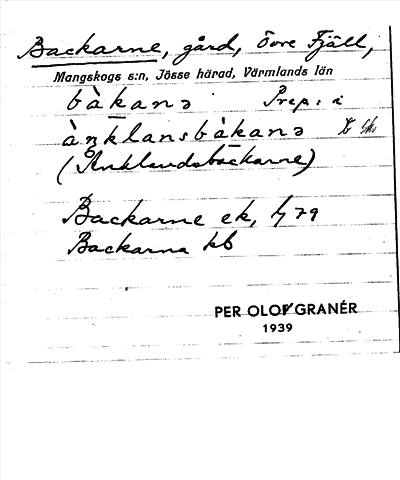 Backarne, gård, Övre Fjäll,
Mangskogs s:n, Jösse härad, Värmlands län
bàkanə Prep: i
àŋklansbàkanə
(Anklandsbackarne)
Backarne ek, 79
Backarna kb
PER OLOF GRANÉR
1939